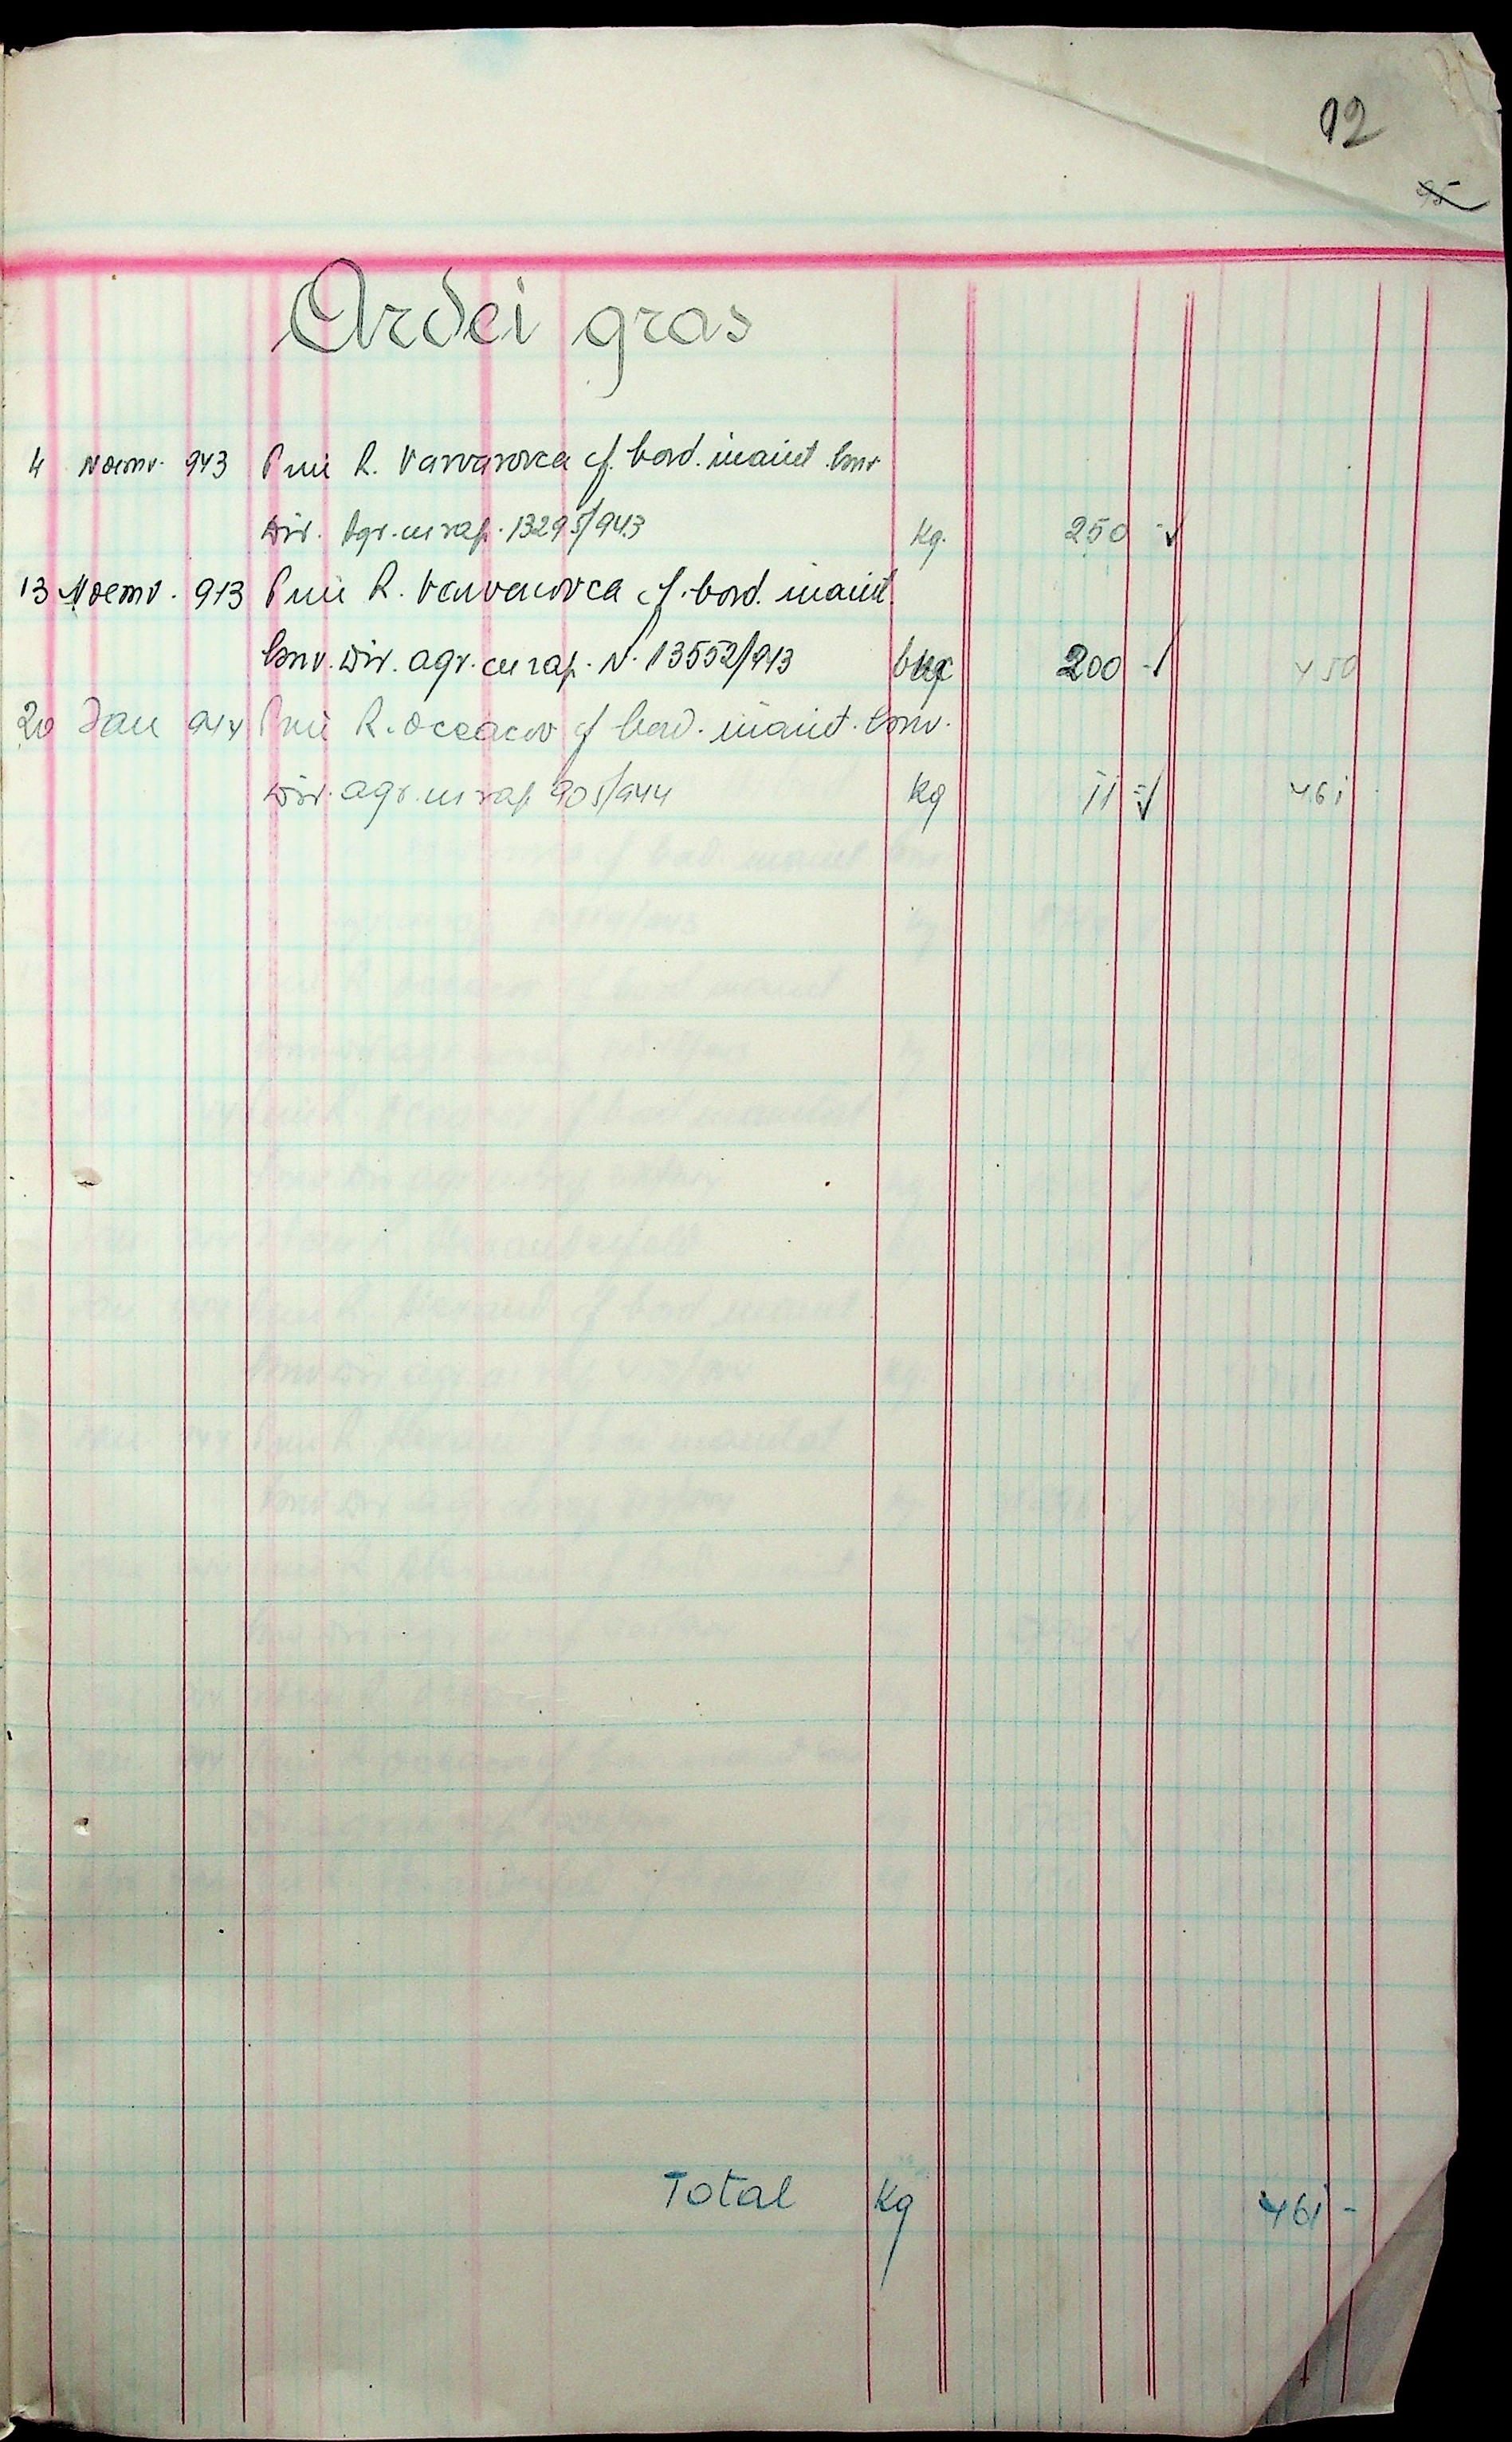 12
95
Ardei gras
4 Noemv. 943 Prin R. Varvarovca cf. bord. inaint. Conv.
Dir. Agr. cu rap. 13295/943 Kg. 250 -
13 Noemv. 943 Prin R. Varvarovca cf. bord. inaint.
Conv. Dir. agr. cu rap. N. 13552/943 kg 200 - 450
20 Jan 944 Prin R. Oceacov cf bord. inaint. Conv.
Dir. agr. cu rap. 905/944 Kg 11 = 461
Total Kg 461 -